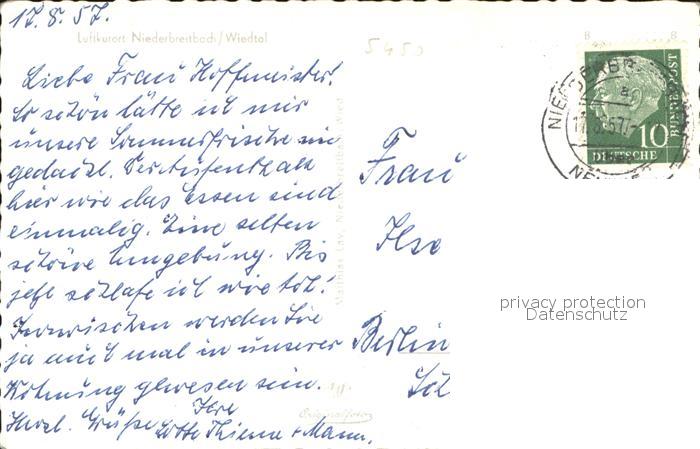 17.8.57.
Luftkurort Niederbreitbach/Wiedtal
5450
Liebe Frau Hoffmeister!
So schön hätte ich mir
unsere Sommerfrische nie
gedacht. Der Aufenthalt
hier wie das Essen sind
einmalig. Eine selten
schöne Umgebung. Bis
jetzt schlafe ich wie tot!
Inzwischen werden Sie
ja auch mal in unserer
Wohnung gewesen sein.
Herzl. Grüße Ihre
Lotte Thieme + Mann.
Originalfoto
Frau
Ilse
Berlin
DEUTSCHE
BUNDESPOST
10
privacy protection
Datenschutz